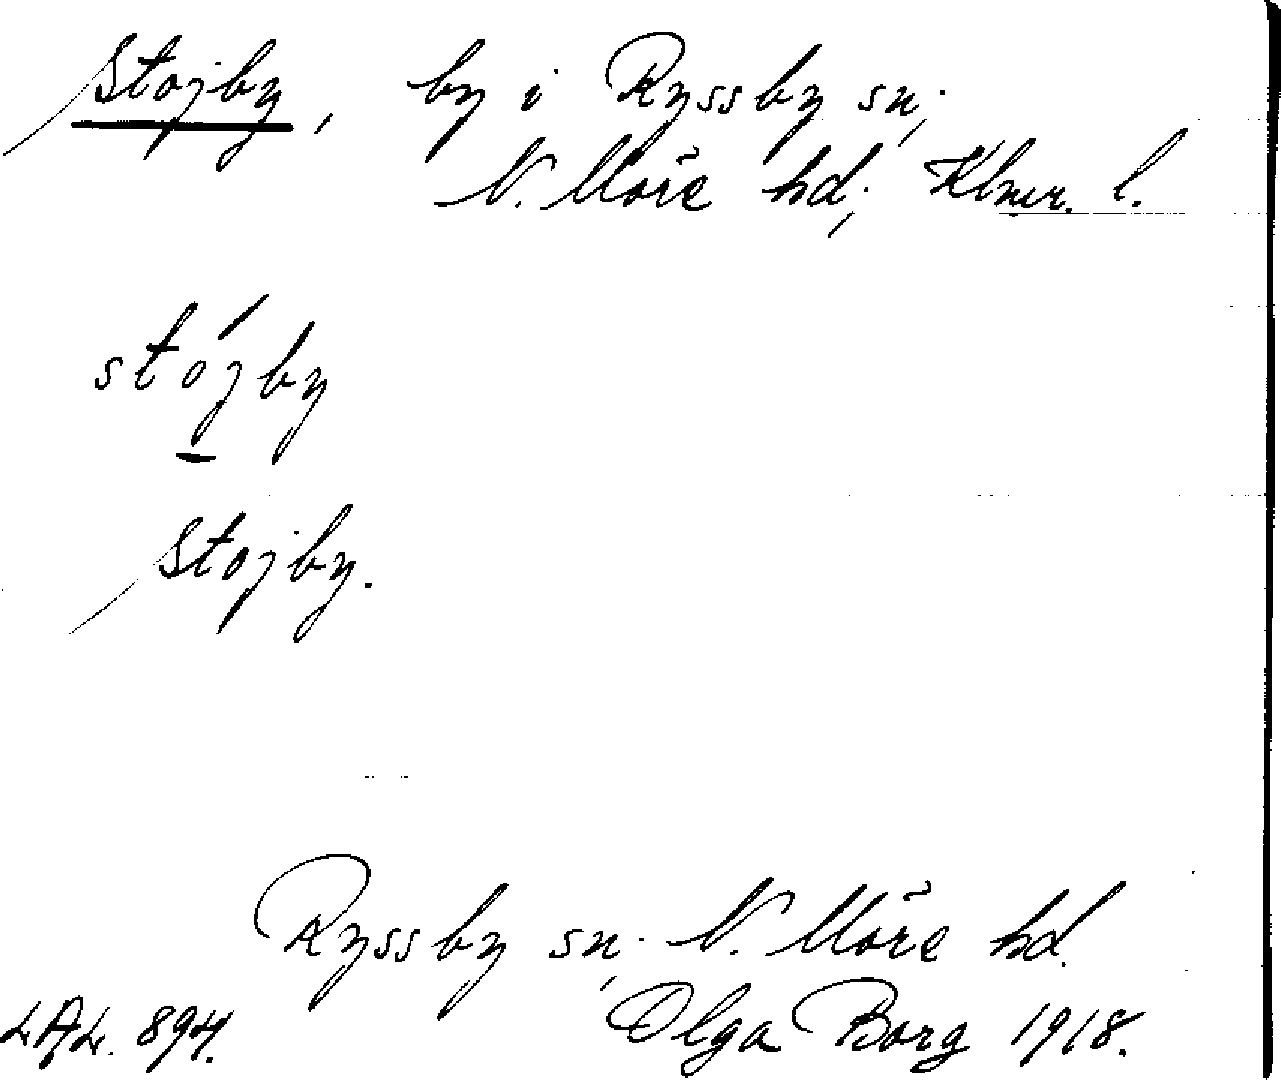 Stojby, by i Ryssby sn,
N. Möre hd, Klmr. l.
stójby
Stojby.
Ryssby sn, N. Möre hd.
LAL. 894. Olga Borg 1918.